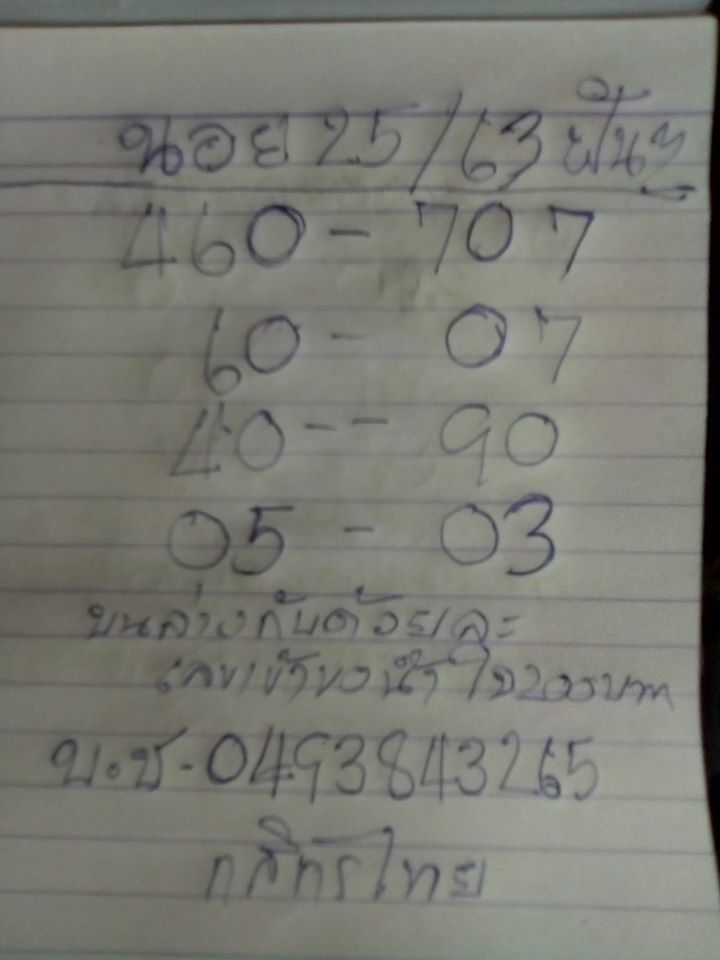 นอย 25/63 ฟันๆ
460 - 707
60 - 07
40 -- 90
05 - 03
บนล่างกับด้วยเละ
เลขเข้าขอน้ำใจ200บาท
บ.ช - 0493843265
กสิกรไทย